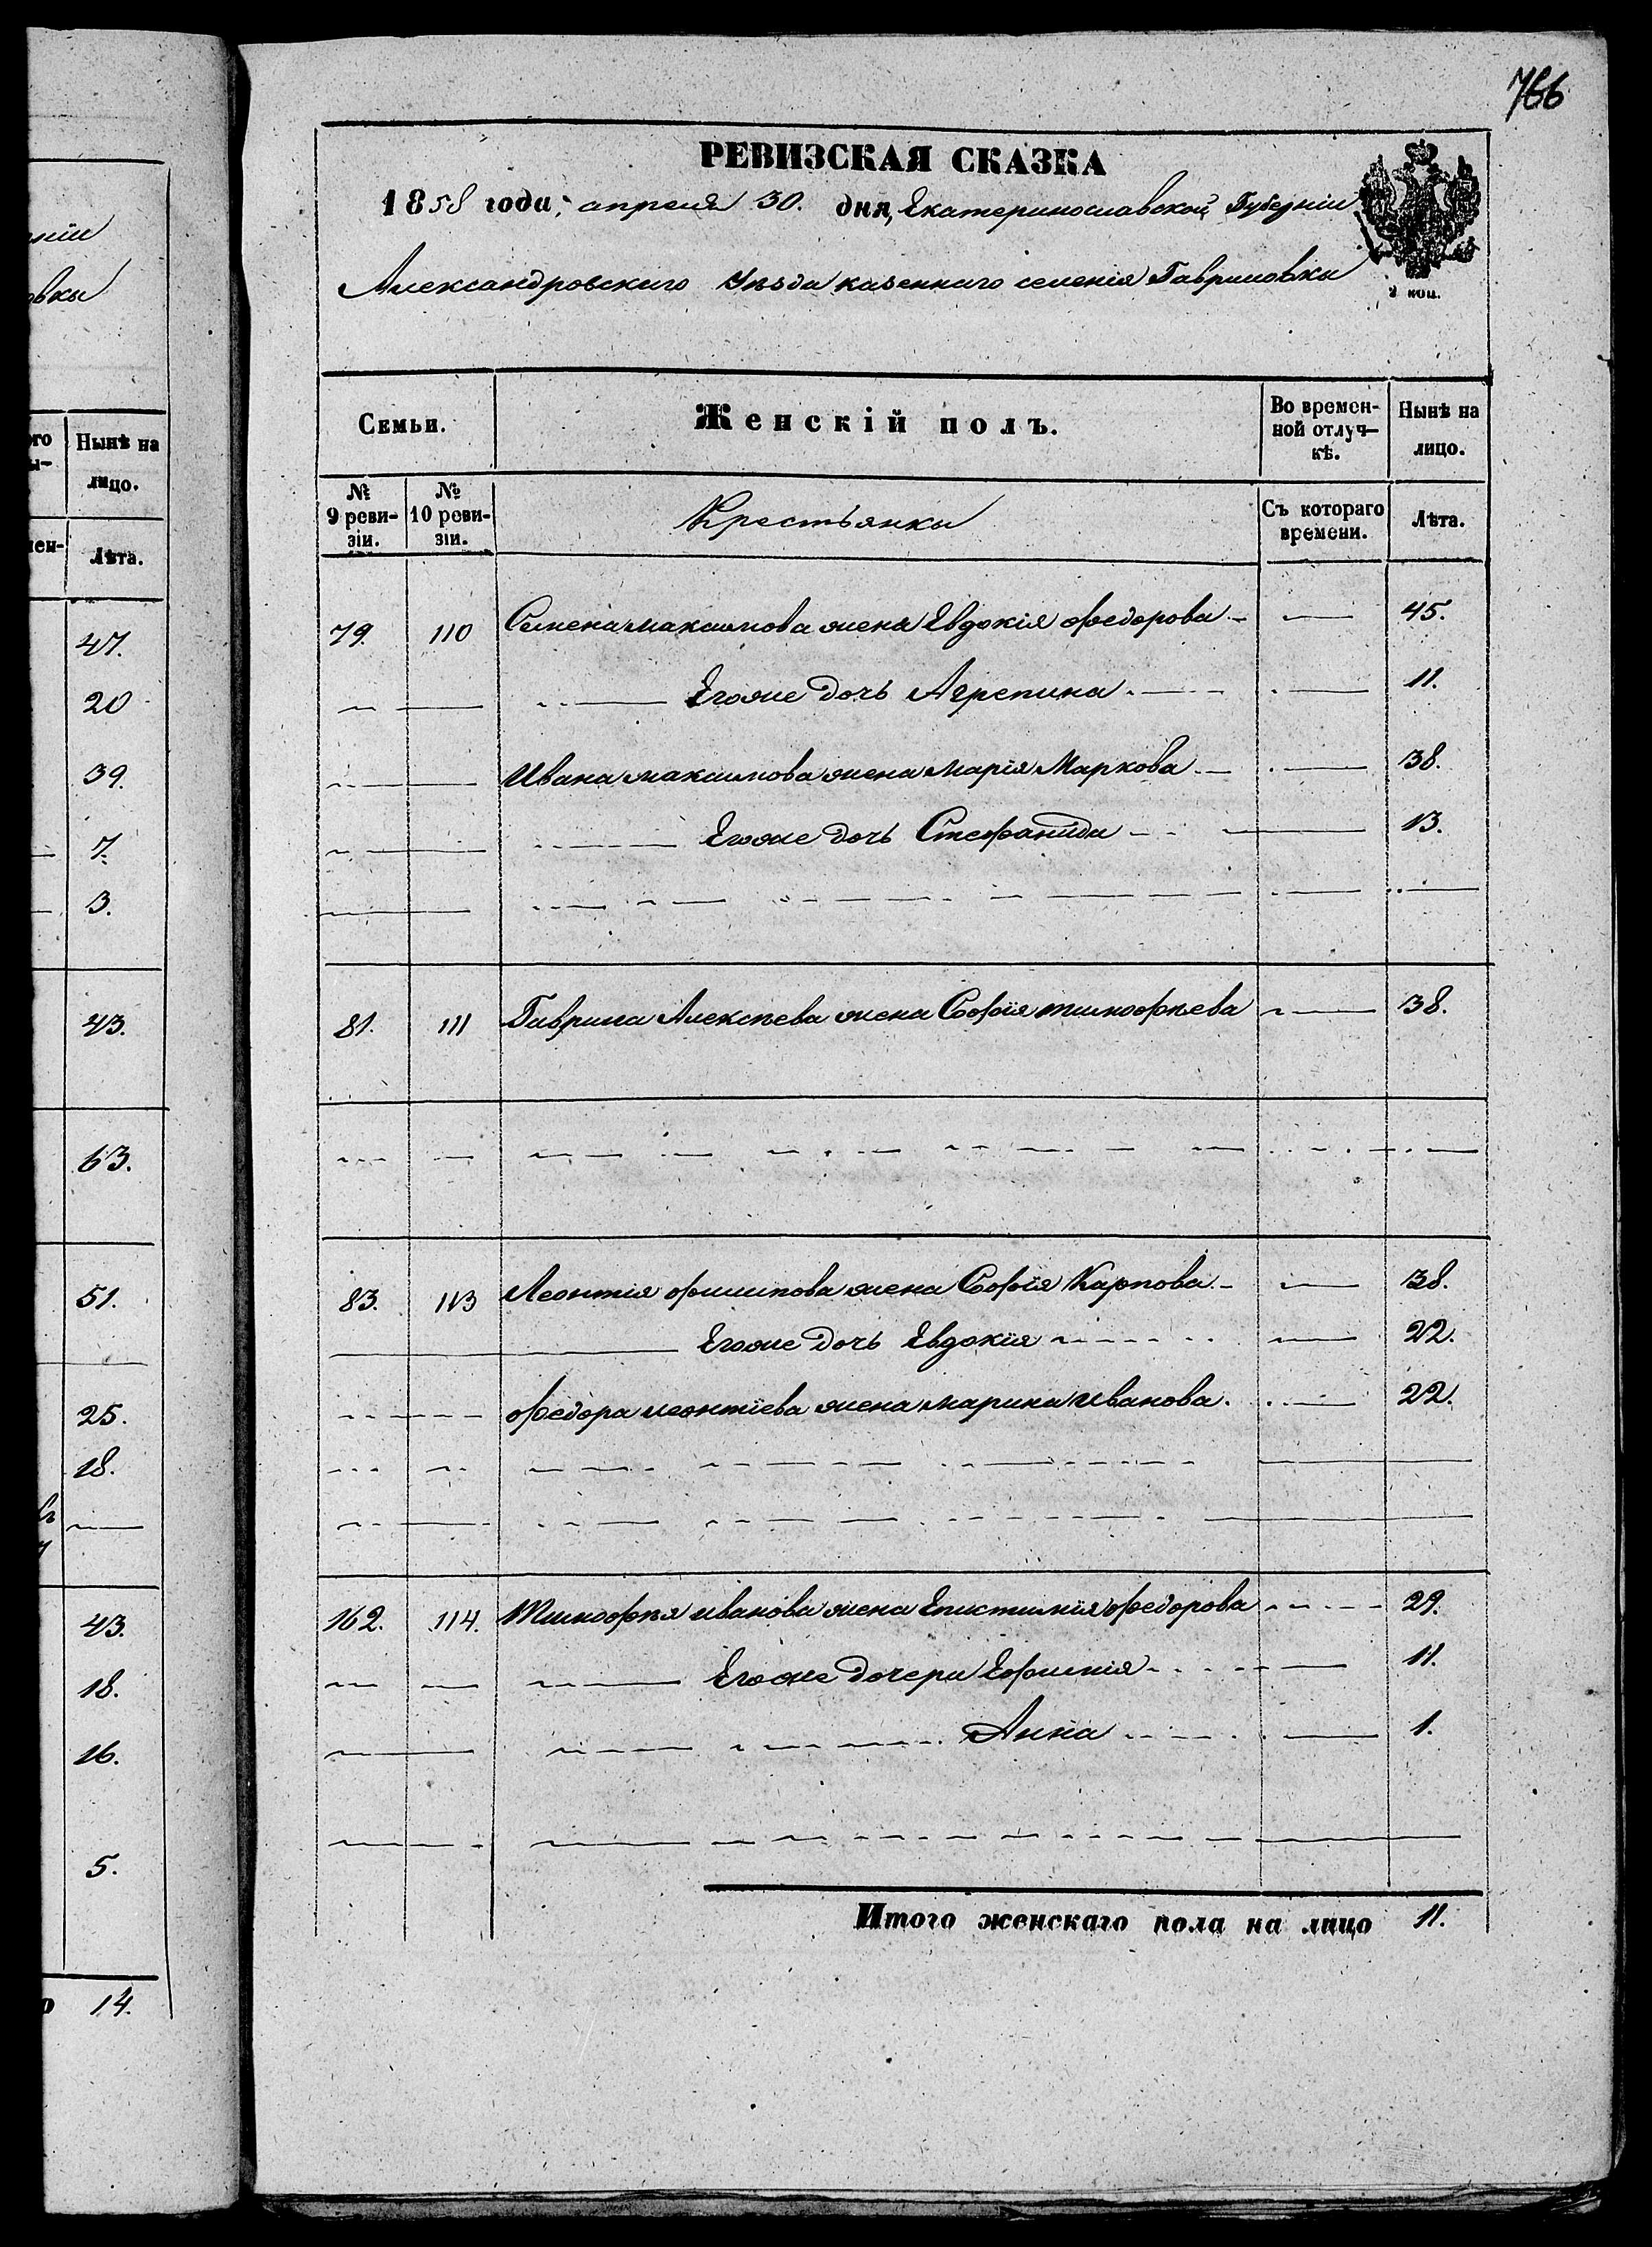 нiи
овки
Нынѣ на
лицо.
Лѣта.
47.
20
39.
7.
3.
43.
63.
51.
25.
18.
43.
18.
16.
5.
14.
766
РЕВИЗСКАЯ СКАЗКА
1858 года, апреля 30. дня, Екатеринославской Губерніи
Александровскаго Уѣзда казеннаго селенія Гавриловки
2 коп.
Семьи.
Женскій полъ.
Во времен-
ной отлуч-
кѣ.
Нынѣ на
лицо.
№
9 реви-
зіи.
№
10 реви-
зіи.
Крестьянки
Съ котораго
времени.
Лѣта.
79. 110 Семена максимова жена Евдокія федорова — 45.
Егоже дочь Агрепина 11.
Ивана максимова жена Марія Маркова 38.
Егоже дочь Стефанида 13.
81. 111 Гаврила Алексѣева жена Софія тимофѣева 38.
83. 113 Леонтія филипова жена Софія Карпова 38.
Егоже дочь Евдокія 22.
федора леонтіева жена марина иванова. 22.
162. 114. Тимофѣя иванова жена Епистимія федорова 29.
Егоже дочери Ефимія 11.
Анна 1.
Итого женскаго пола на лицо 11.